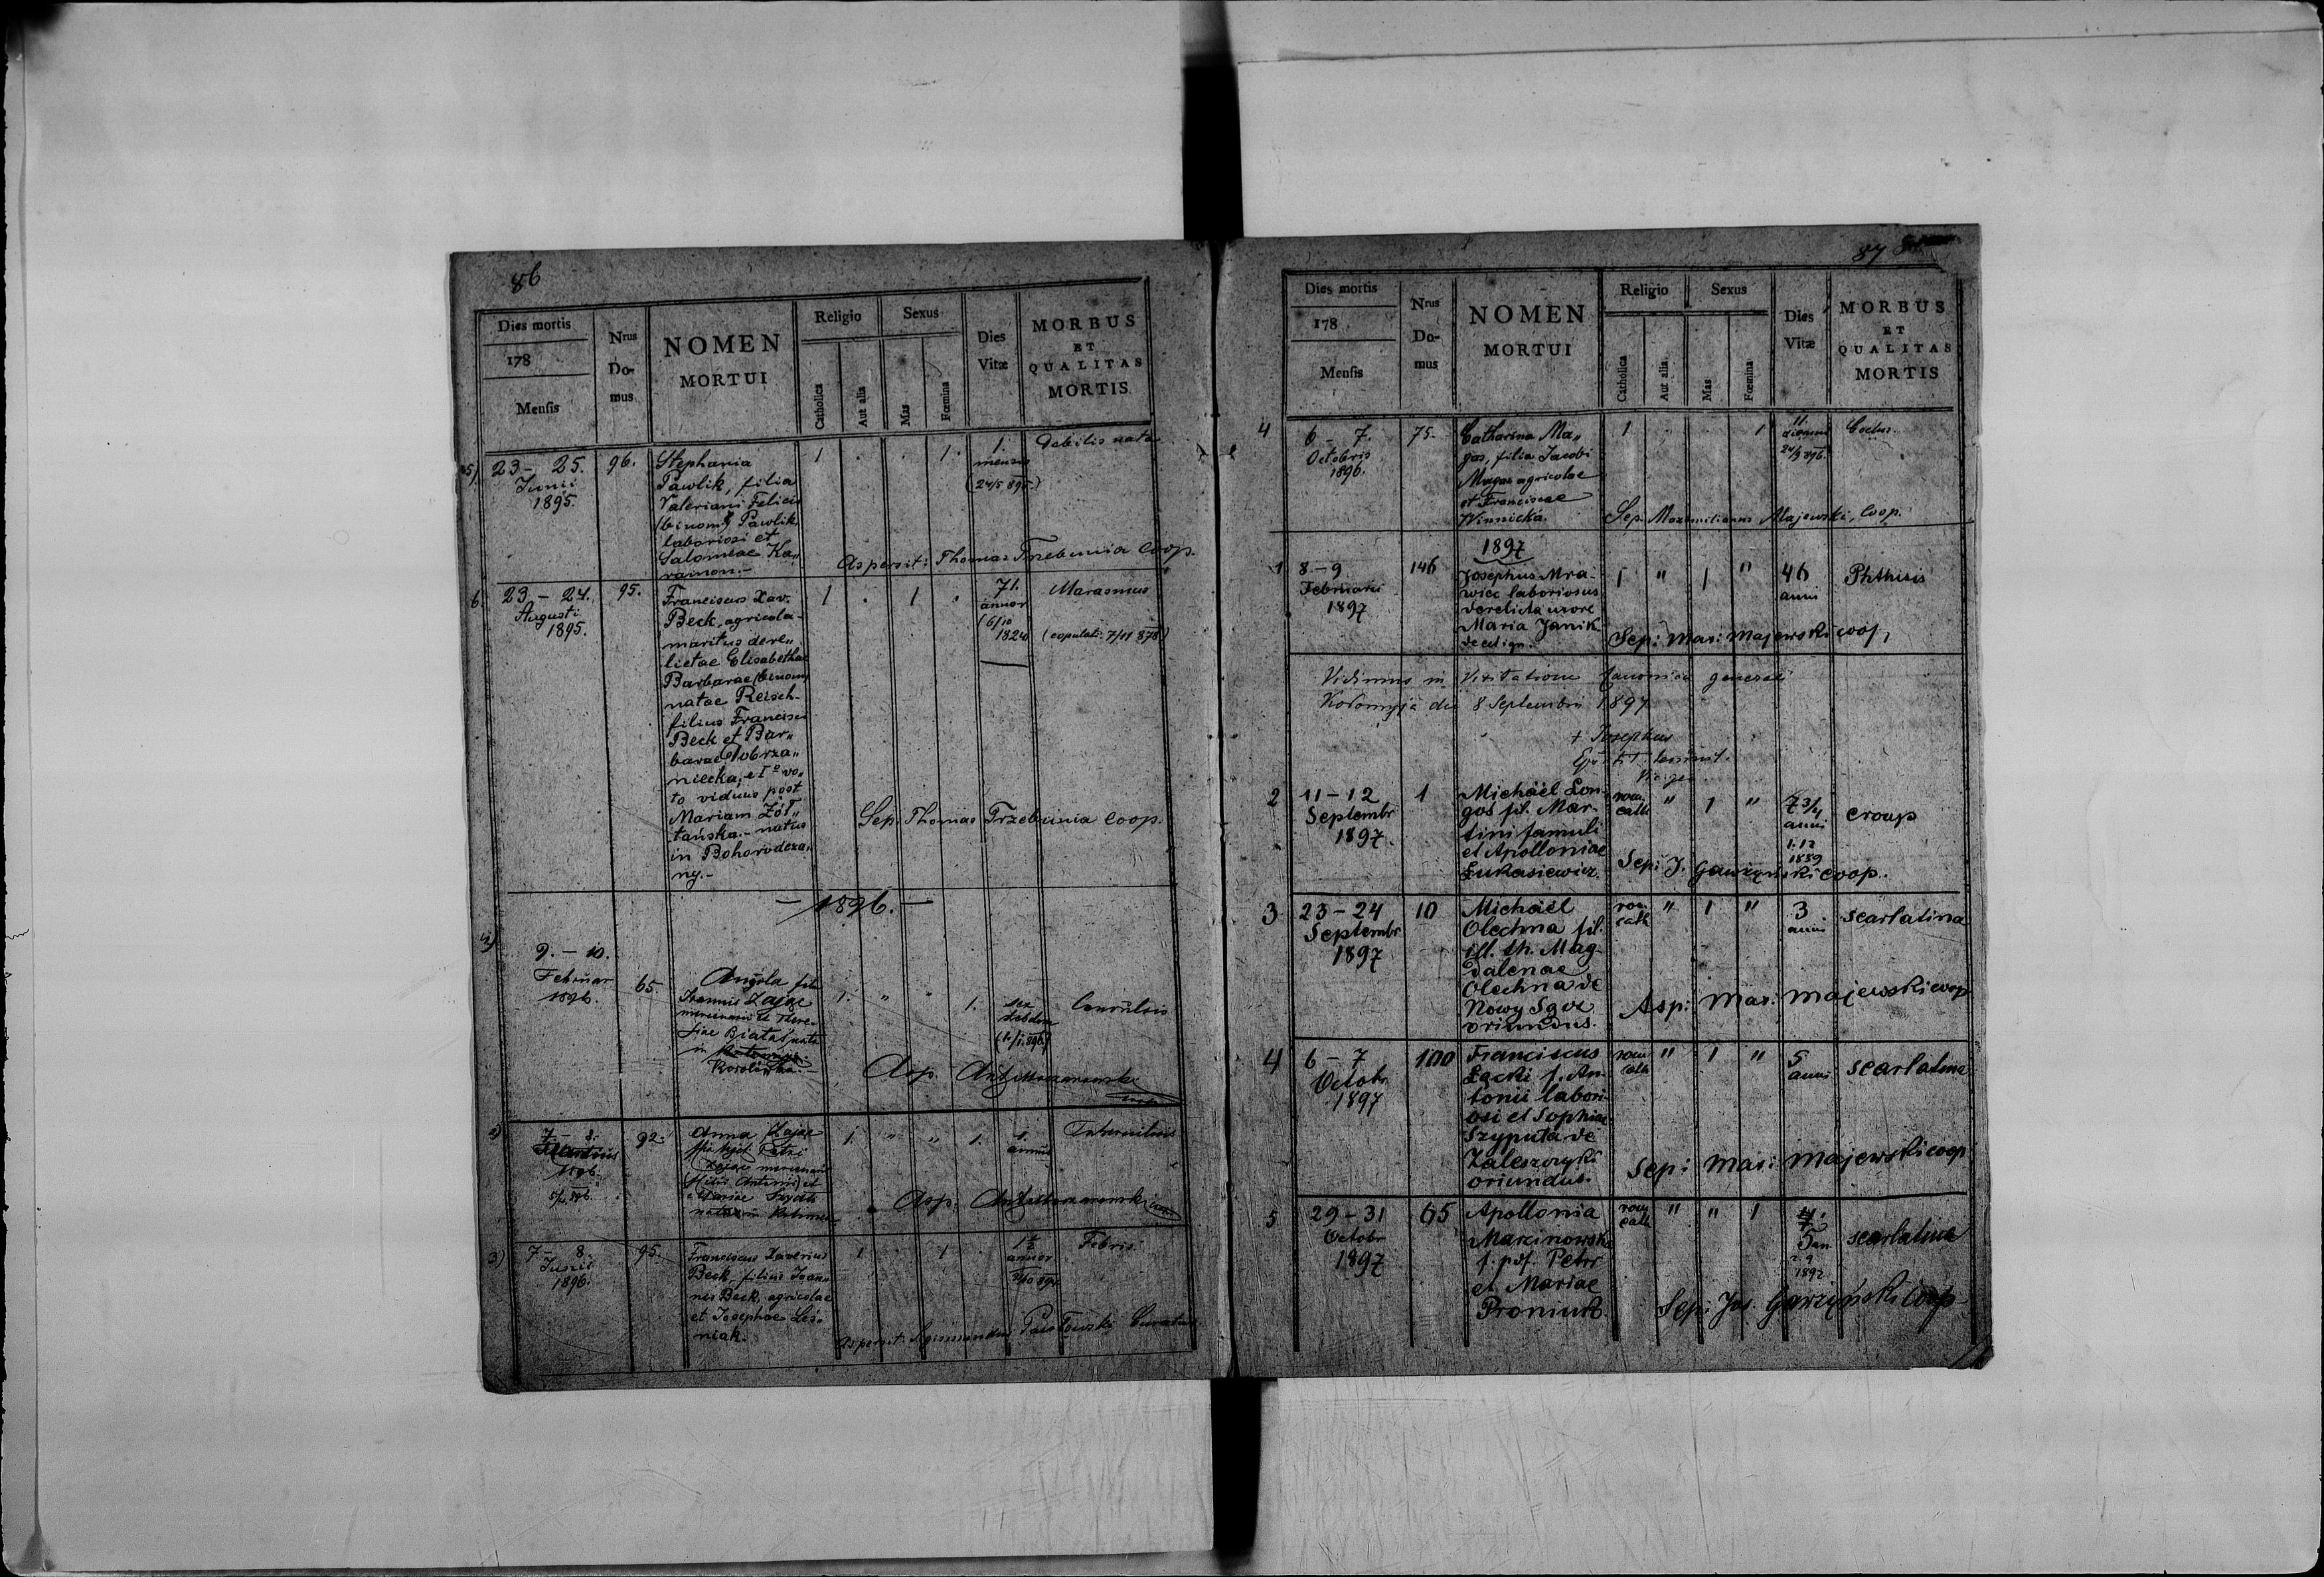 86
Dies mortis
178
Mensis
Nrus Domus
NOMEN MORTUI
Religio
Catholica
Aut alia
Sexus
Mas
Fœmina
Dies Vitæ
MORBUS ET QUALITAS MORTIS
5)
23 – 25. Junii 1895.
96.
Stephania
Pawlik, filia
Valeriani Felicis
(binom) Pawlik
laboriosi et
Salomeae Ka„
ramon.–
1 . . 1.
1. mensis
(24/5 895.)
Debilis nata
Aspersit: Thomas Trzebunia Coop.
6
23 – 24. Augusti 1895.
95.
Franciscus Xav.
Beck, agricola-
maritus dere„
lictae Elisabethae
Barbarae (binom)
natae Reisch-
filius Francisci
Beck et Bar„
barae Dobrza„
niecka; et Iº vo„
to viduus post
Mariam Żół„
tańska.– natus
in Bohorodcza„
ny.–
1 . 1 .
71. annor
(6/10
1824
Marasmus
(copulati: 7/11 878)
Sep: Thomas Trzebunia Coop.
– 1896. –
9. – 10.
Februar
1896.
65.
Angela fil.
Joannis Zając
mercenarii et There-
siae
in
Korolówka.–
1. " " 1.
sex
hebdom
Convulsio
Asp.
2)
7 – 8.
Martius
1896.
92.
Anna Zając
Petri
Zając mercenarii
(filii Antonii) et
Mariae
1. " " 1.
1. annus
Asp.
3)
7 – 8.
Junii
1896.
95.
Franciscus Xaverius
Beck, filius Joan„
nis Beck, agricolae
et Josephae Leś„
niak.
1 . 1 .
1½
annor
Febris
Aspersit: Sigismundus Pawłowski Curatus
87
Dies mortis
178
Mensis
Nrus Domus
NOMEN MORTUI
Religio
Catholica
Aut alia
Sexus
Mas
Fœmina
Dies Vitæ
MORBUS ET QUALITAS MORTIS
4
6 – 7.
Octobris
1896.
75.
Catharina Ma„
gas, filia Jacobi
Magas agricolae
et Franciscae
Winnicka.
1 . . 1
11
dierum
24/9 896.
Sep. Maximilianus Majewski, Coop.
1897
1
8 – 9
Februarii
1897
146
Josephus Mra-
wiec laboriosus
derelicta uxore
Maria Janik
1 " 1 "
46
anni
Phthisis
Sep: Max: Majewski coop,
Vidimus in Visitatione Canonica generali
Kołomyja die 8 Septembris 1897
+ Josephus
2
11 – 12
Septembr
1897
1
Michaël Lon-
gos fil. Mar-
tini famuli
et Apolloniae
Łukasiewicz.
rom. cath
" 1 "
7 3/4
anni
1.12
1889
croup
Sep: J. Garzyński coop.
3
23 – 24
Septembr
1897
10
Michaël
Olechna fil.
ill. th. Mag-
dalenae
Olechna de
Nowy Sącz
oriundus.
rom. cath
" 1 "
3
anni
scarlatina
Asp: Max: Majewski coop
4
6 – 7
Octobr.
1897
100
Franciscus
Łącki f. An-
tonii labori-
osi et Sophiae
Szyputa de
Zaleszczyki
oriundus.
rom cath
" 1 "
5
anni
scarlatina
Sep: Max: Majewski coop
5
29 – 31
Octobr
1897
65
Apollonia
Marcinowska
f. p.d. Petri
et Mariae
Proniuk
rom cath
" " 1
5 an
1892
scarlatina
Sep: Jos. Garzyński Coop